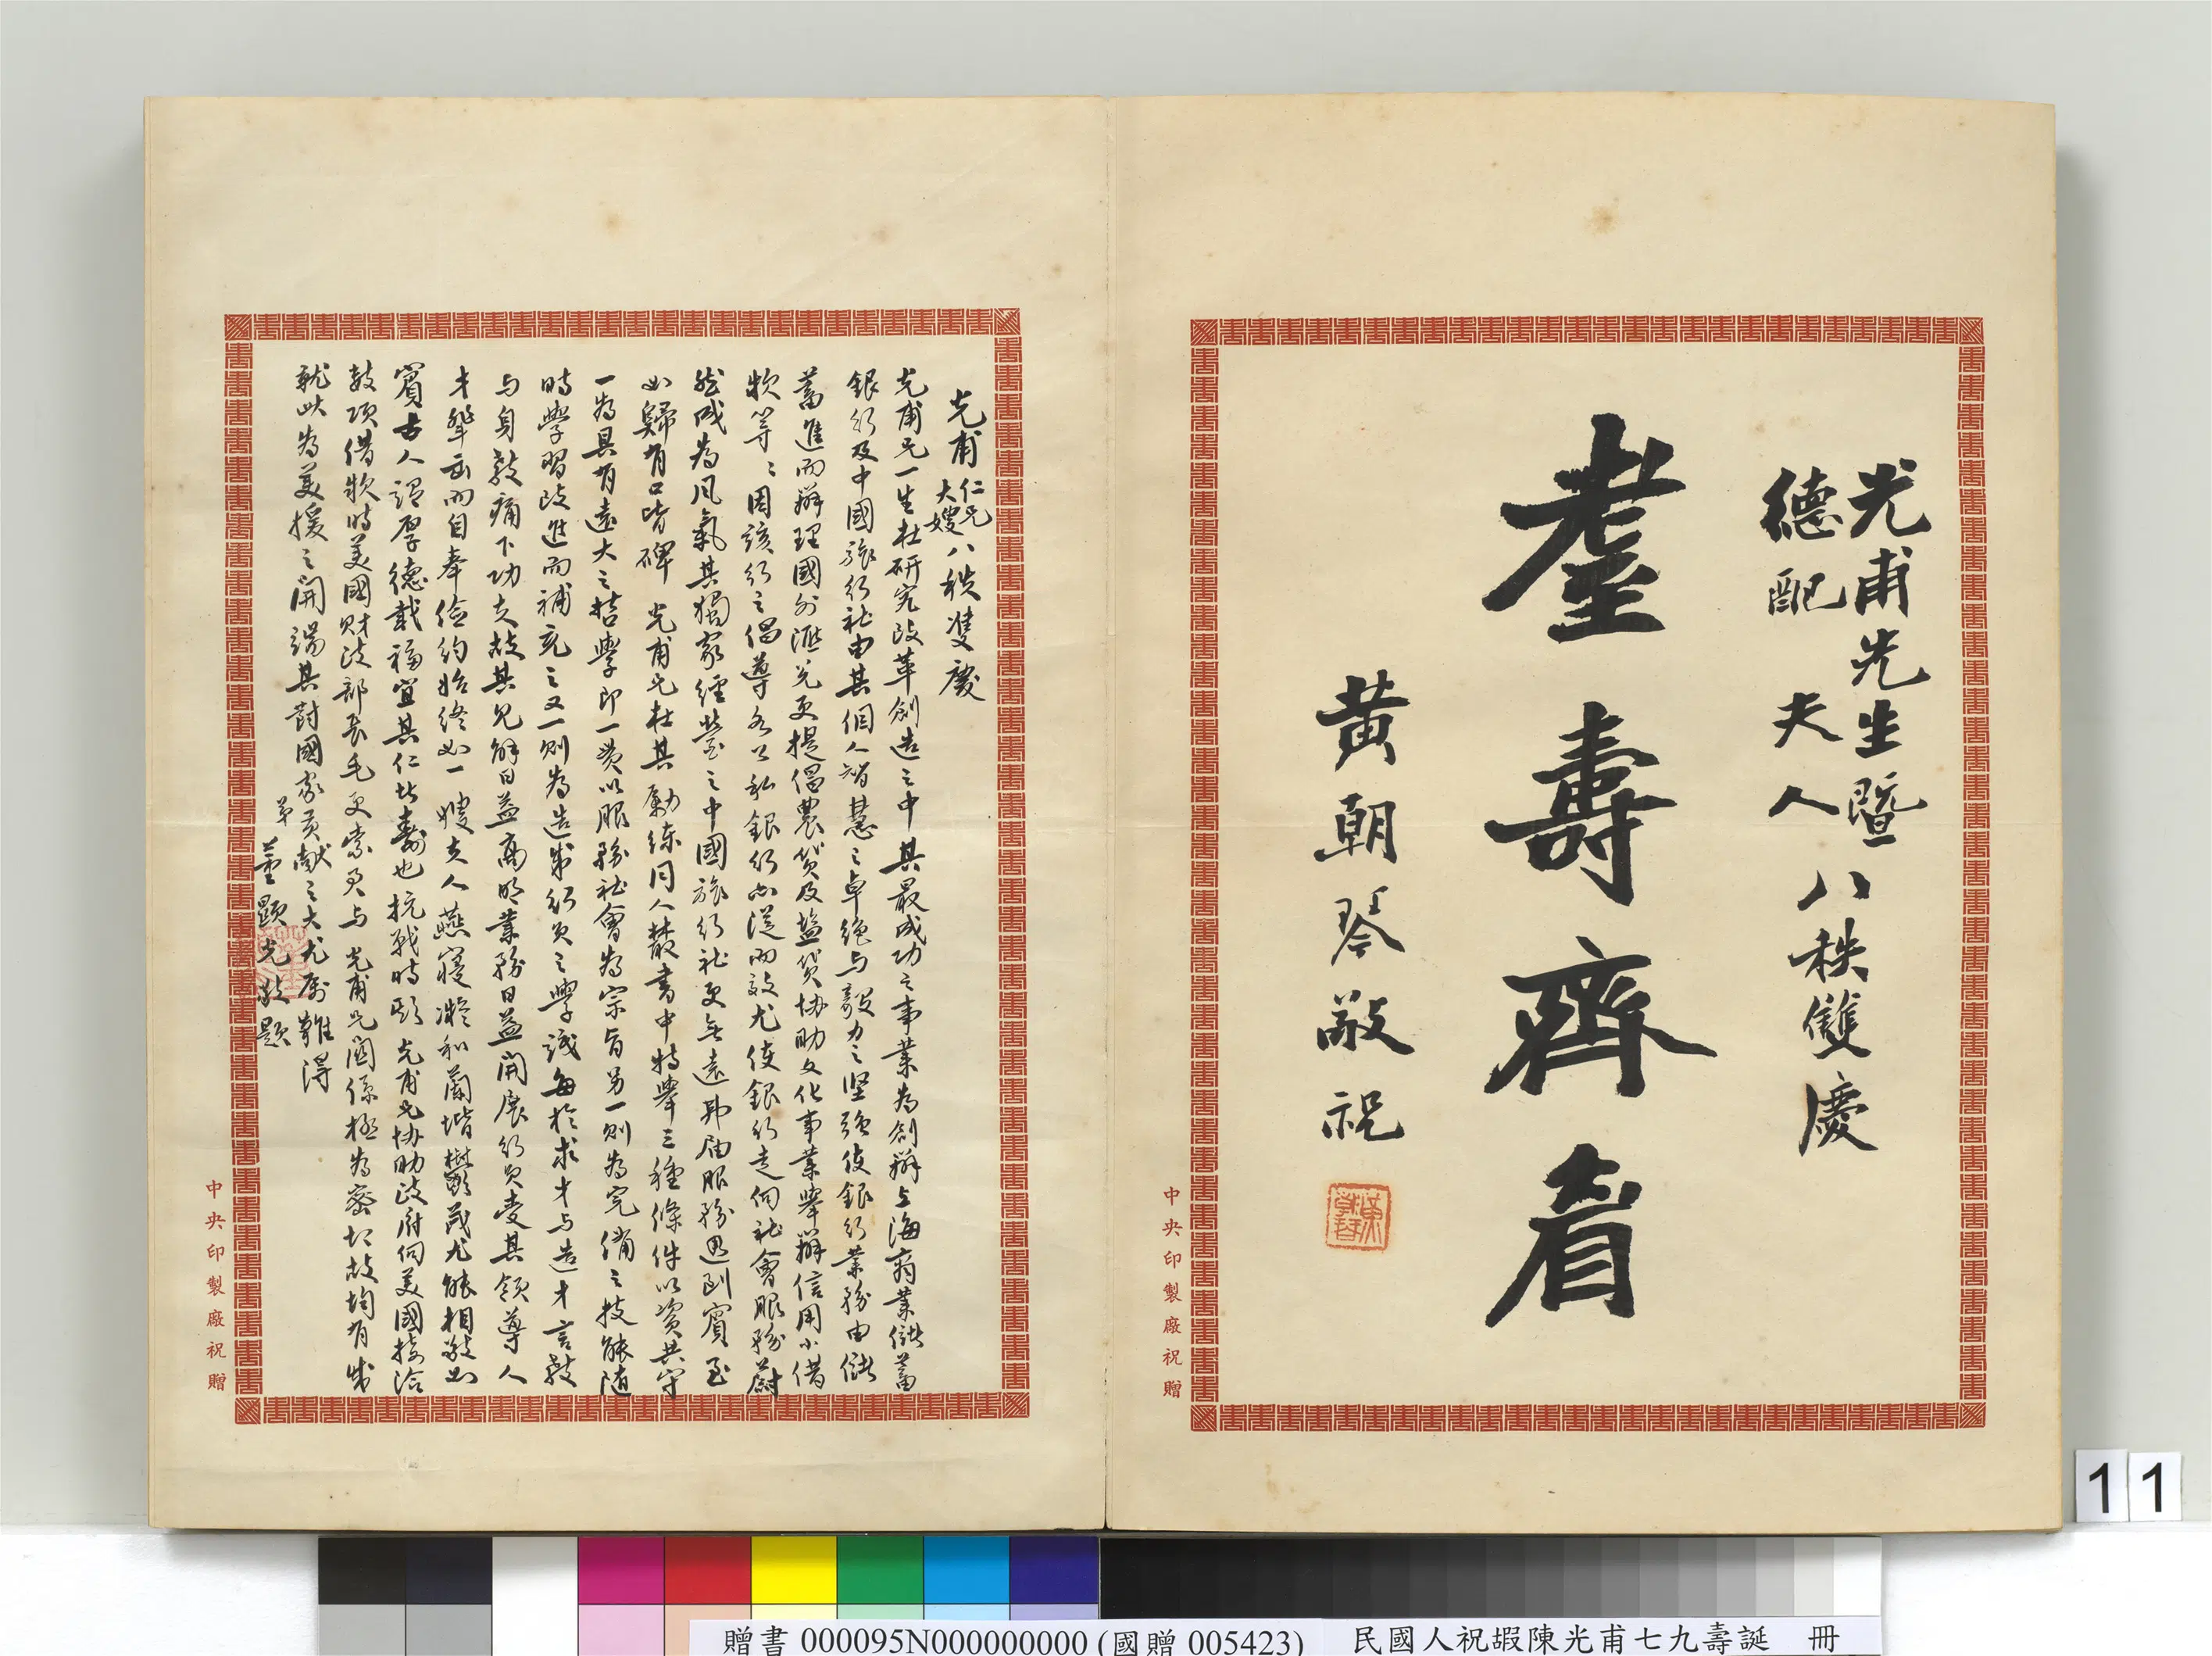 光甫先生暨
德配 夫人 八秩雙慶
耋壽齊眉
黃朝琴敬祝
中央印製廠祝贈
光甫仁兄大嫂八秩雙慶
光甫兄一生在研究改革創造之中其最成功之事業為創辦上海商業儲蓄
銀行及中國旅行社由其個人智慧之卓絕與毅力之堅強使銀行業務由儲
蓄進而辦理國外滙兌更提倡農貸及鹽貸協助文化事業舉辦信用小借
款等等因該行之倡導各公私銀行亦從而效尤使銀行走向社會服務蔚
然成為風氣其獨家經營之中國旅行社更無遠弗屆服務週到賓至
如歸有口皆碑 光甫兄在其勵練同人叢書中特舉三種條件以資共守
一為具有遠大之哲學即一貫以服務社會為宗旨另一則為完備之技能隨
時學習改進而補充之又一則為造成行員之學識每於求才与造才言教
与身教痛下功夫故其見解日益高明業務日益開展行員受其領導人
才輩出而自奉儉約始終如一嫂夫人燕寢凝和蘭堦鬱茂尤能相敬如
賓古人謂厚德載福宜其仁者壽也抗戰時期 光甫兄協助政府向美國接洽
數項借款時美國財政部長毛更索氏与 光甫兄關係極為密切故均有成
就此為美援之開端其對國家貢献之大尤屬難得
弟董顯光敬題
中央印製廠祝贈
11
贈書 000095N000000000 (國贈 005423) 民國人祝嘏陳光甫七九壽誕 冊